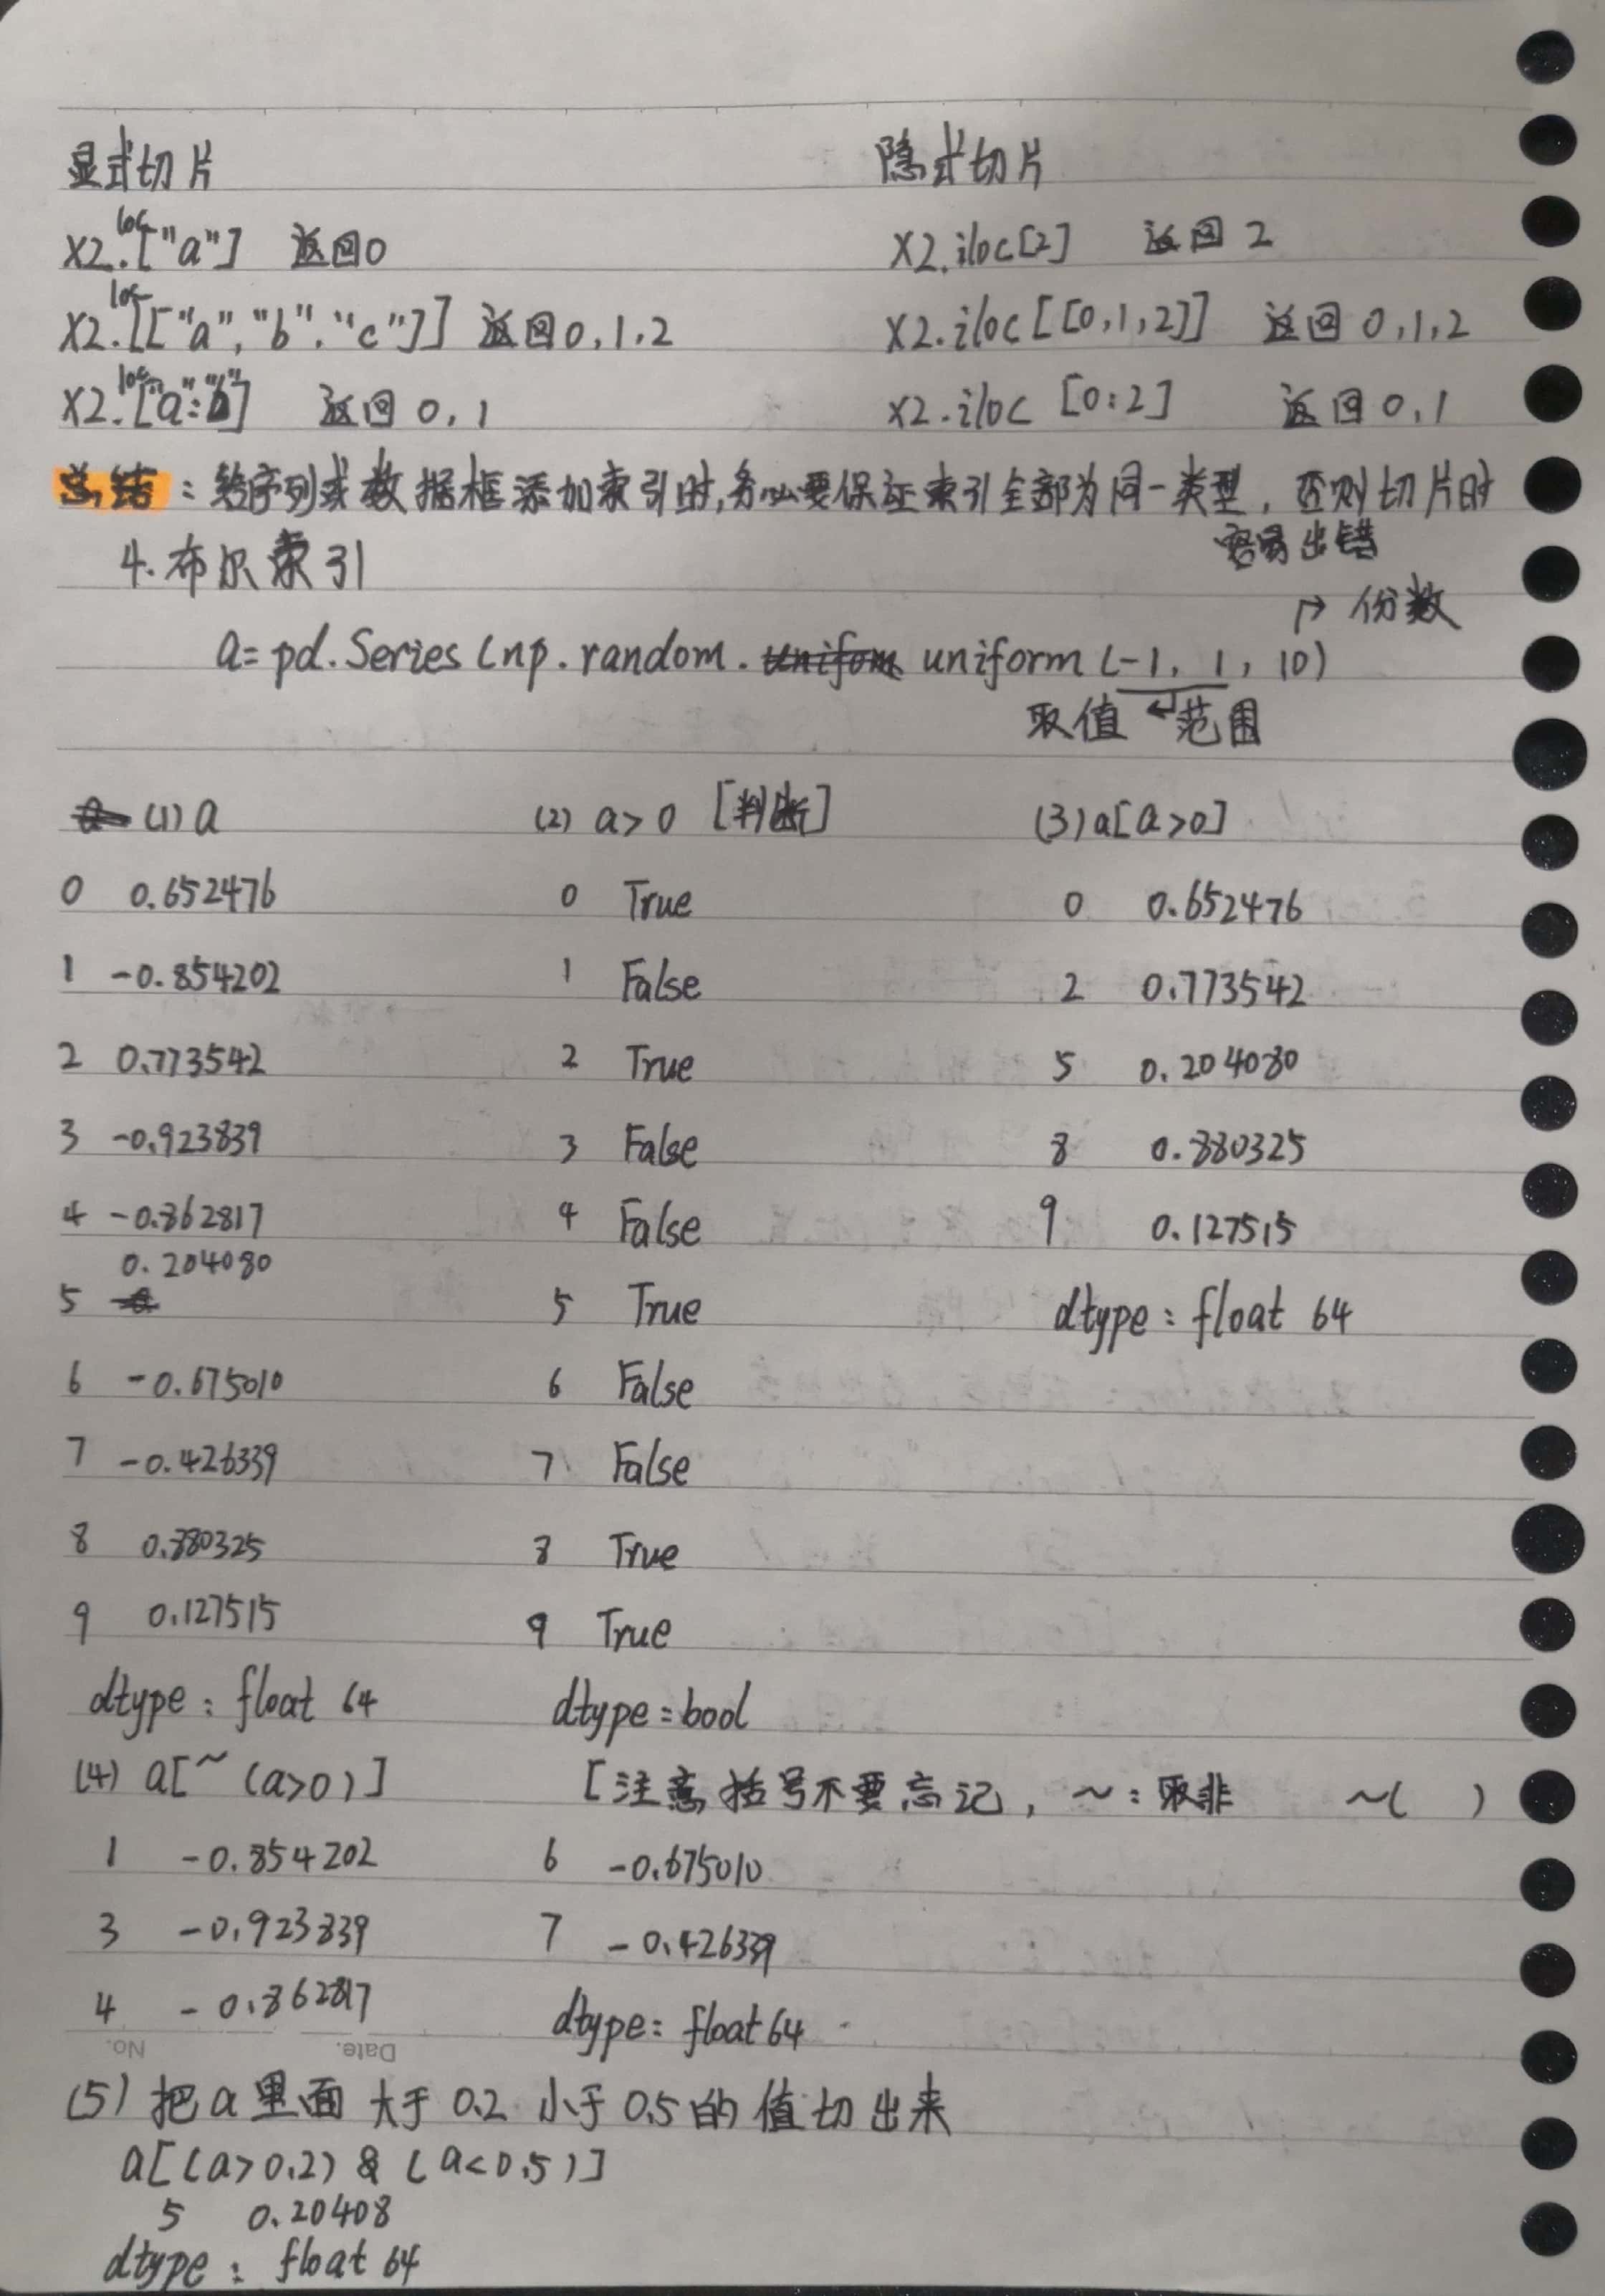 显式切片 隐式切片
X2.loc["a"] 返回0 X2.iloc[2] 返回 2
X2.loc[["a","b"."c"]] 返回0,1,2 X2.iloc[[0,1,2]] 返回 0,1,2
X2.loc["a":"b"] 返回 0,1 X2.iloc [0:2] 返回 0,1
总结：给序列或数据框添加索引时,务必要保证索引全部为同一类型，否则切片时
容易出错
4.布尔索引
↱ 份数
a= pd.Series(np.random.uniform(-1, 1, 10)
取值 ↲ 范围
(1) a (2) a>0 [判断] (3) a[a>0]
0 0.652476 0 True 0 0.652476
1 -0.854202 1 False 2 0.773542
2 0.773542 2 True 5 0.204080
3 -0.923839 3 False 8 0.880325
4 -0.862817 4 False 9 0.127515
0.204080
5 5 True dtype: float 64
6 -0.675010 6 False
7 -0.426339 7 False
8 0.880325 8 True
9 0.127515 9 True
dtype: float 64 dtype=bool
(4) a[~(a>0)] [注意括号不要忘记，~:取非 ~( )
1 -0.854202 6 -0.675010
3 -0.923839 7 -0.426339
4 -0.862817 dtype: float64
No. Date.
(5) 把a里面大于0.2 小于0.5的值切出来
a[(a>0.2) & (a<0.5)]
5 0.20408
dtype: float 64